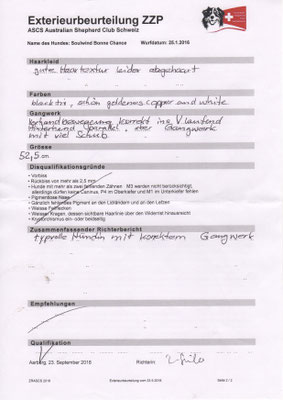 Exterieurbeurteilung ZZP
ASCS Australian Shepherd Club Schweiz
Name des Hundes: Soulwind Bonne Chance Wurfdatum: 25.1.2015
Haarkleid
gute Haartextur leider abgehaart
Farben
black tri, schön goldenes copper and white
Gangwerk
Vorhandbewegung korrekt ins V laufend
Hinterhand parallel, Gangwerk
mit viel Schub.
Grösse
52,5 cm
Disqualifikationsgründe
- Vorbiss
- Rückbiss von mehr als 2,5 mm
- Hunde mit mehr als zwei fehlenden Zähnen. M3 werden nicht berücksichtigt,
allerdings dürfen keine Caninus, P4 im Oberkiefer und M1 im Unterkiefer fehlen
- Pigmentlose Nase
- Gänzlich fehlendes Pigment an den Lidrändern und an den Lefzen
- Weisse Fellflecken
- Weisser Kragen, dessen sichtbare Haarlinie über den Widerrist hinausreicht
- Kryptorchismus ein- oder beidseitig
Zusammenfassender Richterbericht
typvolle Hündin mit korrektem Gangwerk
Empfehlungen
Qualifikation
Aarberg, 23. September 2016 Richterin:
Exterieurbeurteilung vom